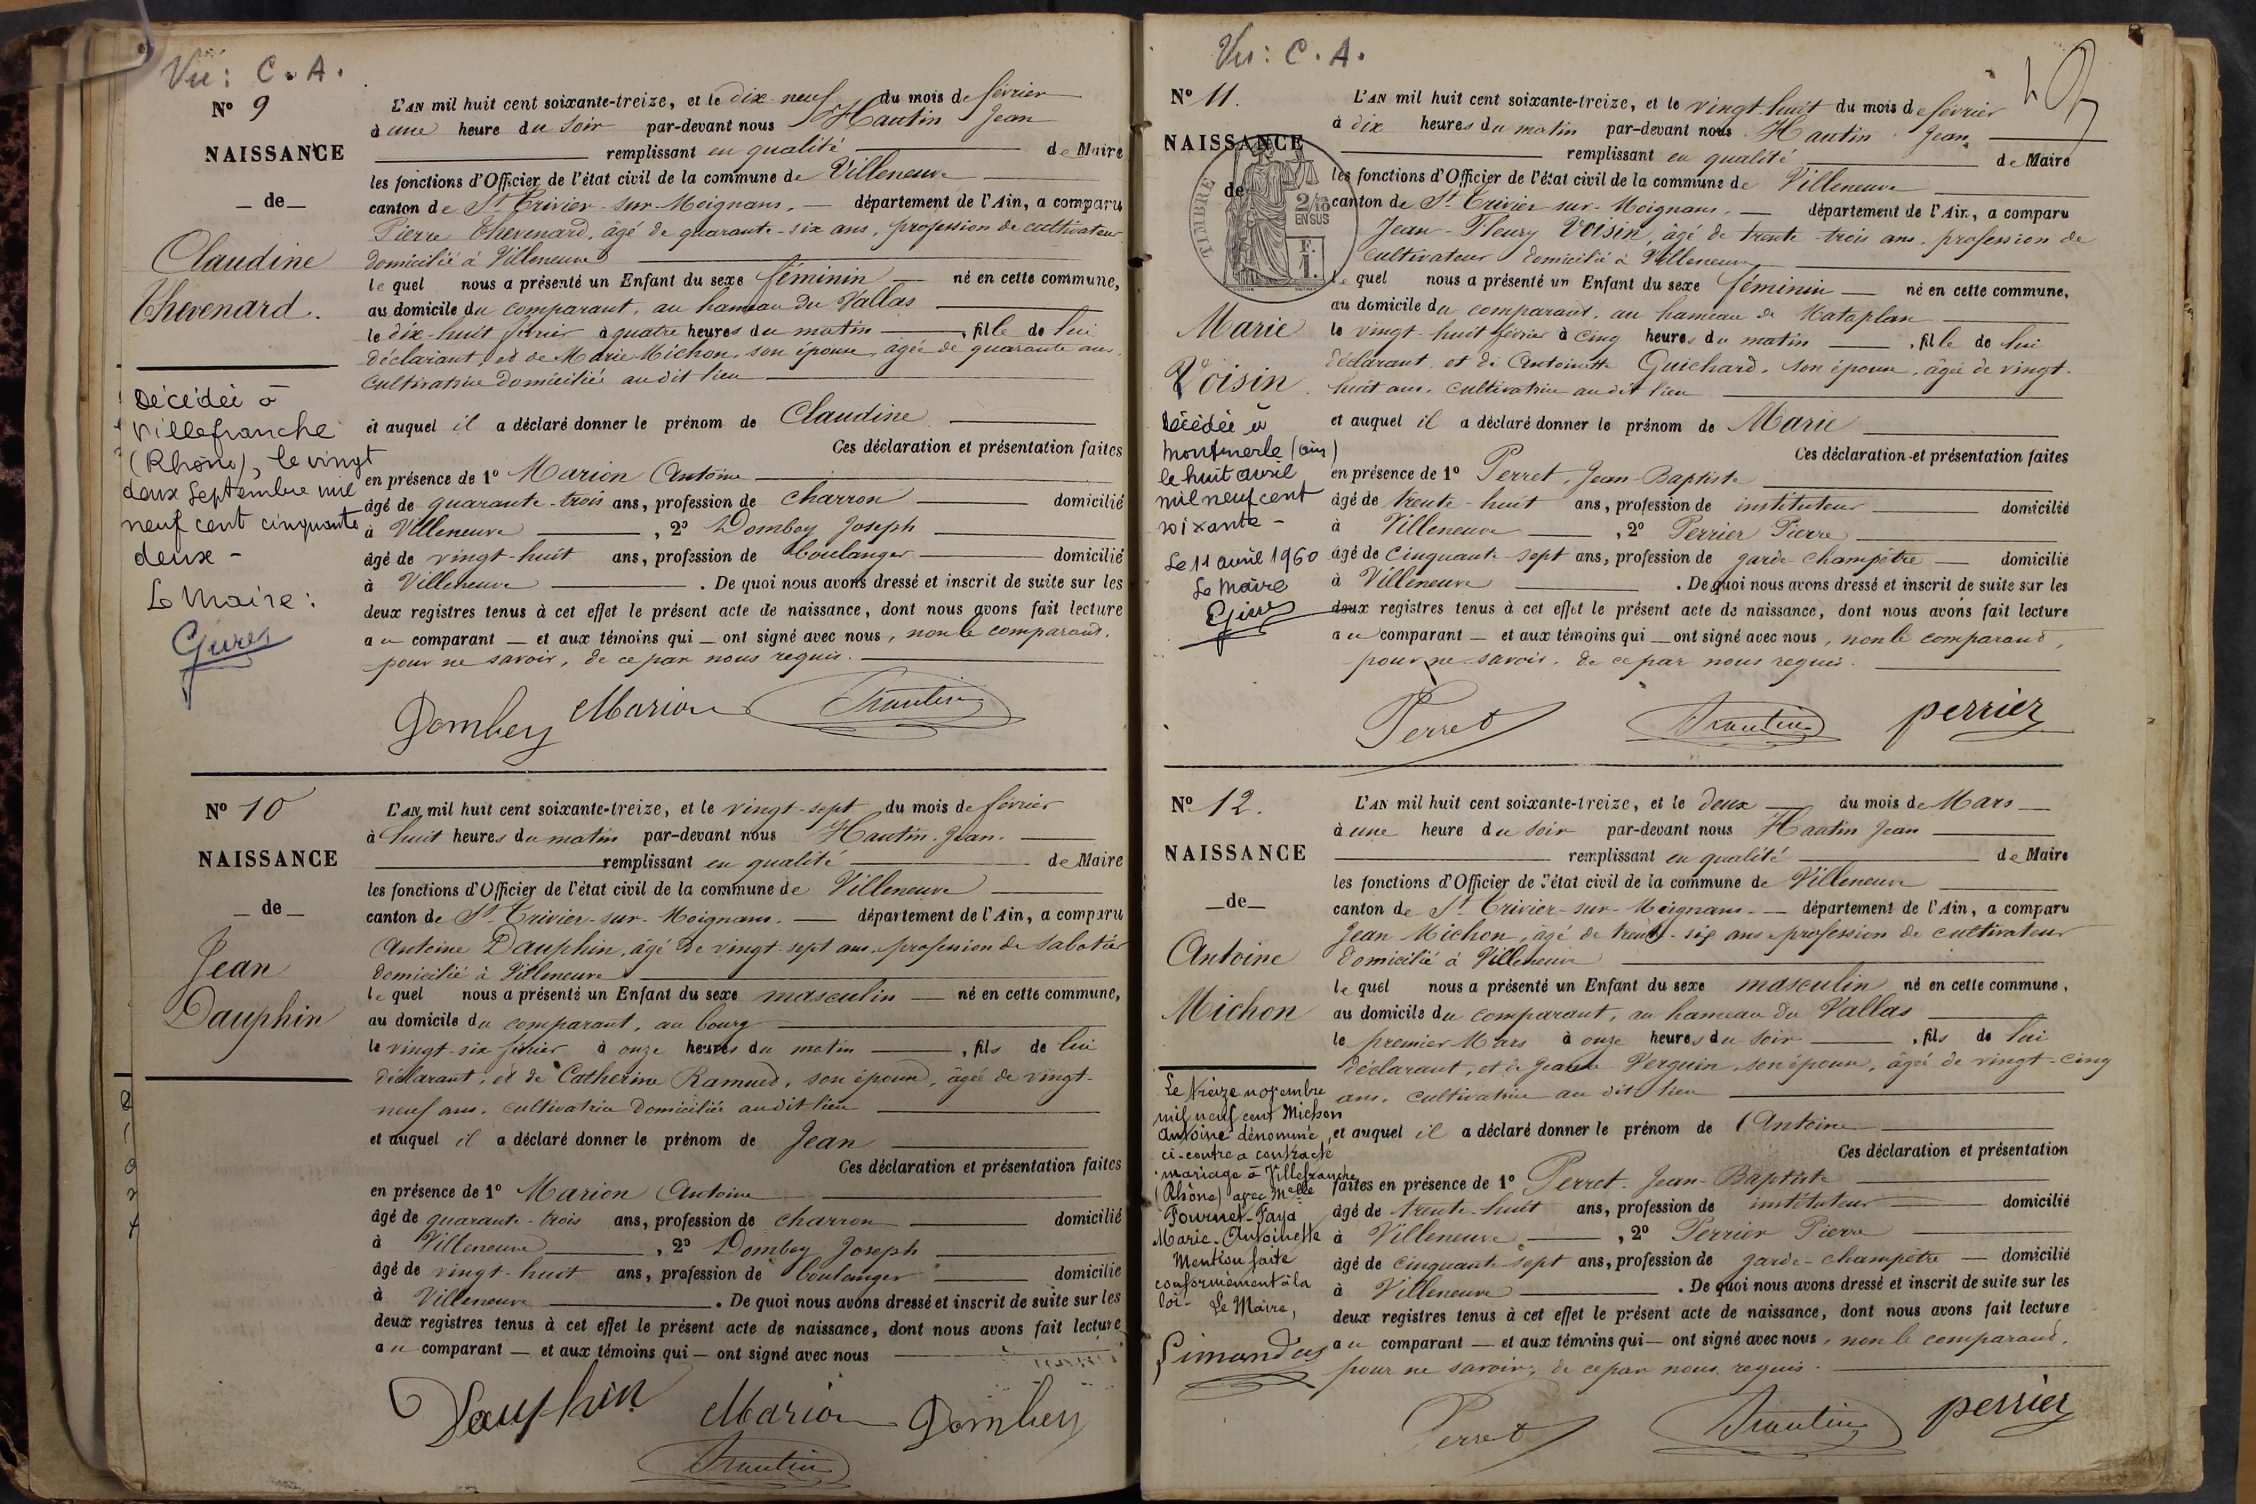 Vu : C. A.
N° 9
NAISSANCE
— de —
Claudine
Thevenard.
Décédée à
Villefranche
(Rhône), le vingt
deux Septembre mil
neuf cent cinquante
deux -
Le Maire :
L'AN mil huit cent soixante-treize, et le dix-neuf du mois de février
à une heure du soir par-devant nous Hautin Jean
remplissant en qualité de Maire
les fonctions d'Officier de l'état civil de la commune de Villeneuve
canton de St Trivier-sur-Moignans. — département de l'Ain, a comparu
Pierre Thevenard, âgé de quarante-six ans, profession de cultivateur
domicilié à Villeneuve
le quel nous a présenté un Enfant du sexe féminin né en cette commune,
au domicile du comparant, au hameau du Vallas
le dix-huit février à quatre heures du matin , fille de lui
déclarant, et de Marie Michon, son épouse, âgée de quarante ans.
cultivatrice domiciliée audit lieu
et auquel il a déclaré donner le prénom de Claudine
Ces déclaration et présentation faites
en présence de 1° Marion Antoine
âgé de quarante-trois ans, profession de charron domicilié
à Villeneuve , 2° Dombey Joseph
âgé de vingt-huit ans, profession de boulanger domicilié
à Villeneuve . De quoi nous avons dressé et inscrit de suite sur les
deux registres tenus à cet effet le présent acte de naissance, dont nous avons fait lecture
au comparant — et aux témoins qui — ont signé avec nous, non le comparant,
pour ne savoir, de ce par nous requis.
Dombey Marion Hautin
N° 10
NAISSANCE
— de —
Jean
Dauphin
L'AN mil huit cent soixante-treize, et le vingt-sept du mois de février
à huit heures du matin par-devant nous Hautin Jean.
remplissant en qualité de Maire
les fonctions d'Officier de l'état civil de la commune de Villeneuve
canton de St Trivier-sur-Moignans. — département de l'Ain, a comparu
Antoine Dauphin, âgé de vingt-sept ans, profession de sabotier
domicilié à Villeneuve
le quel nous a présenté un Enfant du sexe masculin — né en cette commune,
au domicile du comparant, au bourg
le vingt-six février à onze heures du matin , fils de lui
déclarant, et de Catherine Ramued, son épouse, âgée de vingt-
neuf ans, cultivatrice domiciliée audit lieu
et auquel il a déclaré donner le prénom de Jean
Ces déclaration et présentation faites
en présence de 1° Marion Antoine
âgé de quarante-trois ans, profession de charron domicilié
à Villeneuve , 2° Dombey Joseph
âgé de vingt-huit ans, profession de boulanger domicilié
à Villeneuve . De quoi nous avons dressé et inscrit de suite sur les
deux registres tenus à cet effet le présent acte de naissance, dont nous avons fait lecture
au comparant — et aux témoins qui — ont signé avec nous
Dauphin Marion Dombey
Hautin
Vu : C. A.
N° 11.
NAISSANCE
de
TIMBRE
2/10
EN SUS
F.
1.
Marie
Voisin
Décédée à
Montmerle (ain)
le huit avril
mil neuf cent
soixante -
Le 11 avril 1960
Le Maire
L'AN mil huit cent soixante-treize, et le vingt-huit du mois de février
à dix heures du matin par-devant nous Hautin Jean,
remplissant en qualité de Maire
les fonctions d'Officier de l'état civil de la commune de Villeneuve
canton de St Trivier-sur-Moignans. — département de l'Ain, a comparu
Jean-Fleury Voisin, âgé de trente-trois ans, profession de
cultivateur domicilié à Villeneuve
le quel nous a présenté un Enfant du sexe féminin — né en cette commune,
au domicile du comparant, au hameau de Rataplan
le vingt-huit février à cinq heures du matin , fille de lui
déclarant, et de Antoinette Guichard, son épouse, âgée de vingt-
huit ans, cultivatrice audit lieu
et auquel il a déclaré donner le prénom de Marie
Ces déclaration et présentation faites
en présence de 1° Perret, Jean-Baptiste
âgé de trente-huit ans, profession de instituteur domicilié
à Villeneuve , 2° Perrier Pierre
âgé de cinquante-sept ans, profession de garde champêtre — domicilié
à Villeneuve . De quoi nous avons dressé et inscrit de suite sur les
deux registres tenus à cet effet le présent acte de naissance, dont nous avons fait lecture
au comparant — et aux témoins qui — ont signé avec nous, non le comparant,
pour ne savoir, de ce par nous requis.
Perret Hautin perrier
N° 12.
NAISSANCE
— de —
Antoine
Michon
Le treize novembre
mil neuf cent Michon
Antoine dénommé
ci-contre a contracté
mariage à Villefranche
(Rhône) avec Melle
Fournet-Faya
Marie-Antoinette
Mention faite
conformément à la
loi - Le Maire,
L'AN mil huit cent soixante-treize, et le deux — du mois de Mars —
à une heure du soir par-devant nous Hautin Jean
remplissant en qualité de Maire
les fonctions d'Officier de l'état civil de la commune de Villeneuve
canton de St Trivier-sur-Moignans — département de l'Ain, a comparu
Jean Michon, âgé de trente-six ans profession de cultivateur
domicilié à Villeneuve
le quel nous a présenté un Enfant du sexe masculin né en cette commune,
au domicile du comparant, au hameau du Vallas
le premier Mars à onze heures du soir , fils de lui
déclarant, et de Jeanne Verguin, son épouse, âgée de vingt-cinq
ans, cultivatrice au dit lieu
et auquel il a déclaré donner le prénom de Antoine
Ces déclaration et présentation
faites en présence de 1° Perret Jean-Baptiste
âgé de trente-huit ans, profession de instituteur domicilié
à Villeneuve , 2° Perrier Pierre
âgé de cinquante-sept ans, profession de garde-champêtre — domicilié
à Villeneuve . De quoi nous avons dressé et inscrit de suite sur les
deux registres tenus à cet effet le présent acte de naissance, dont nous avons fait lecture
au comparant — et aux témoins qui — ont signé avec nous, non le comparant,
pour ne savoir, de ce par nous requis.
Perret Hautin perrier